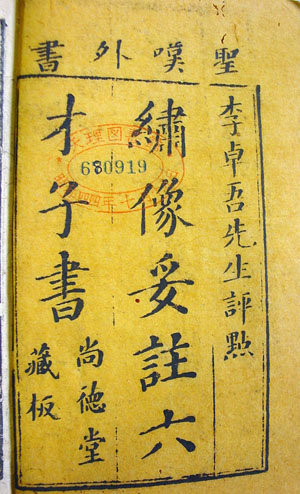 聖嘆外書
李卓吾先生評點
繡像妥註六
才子書
尚德堂
藏板
680919